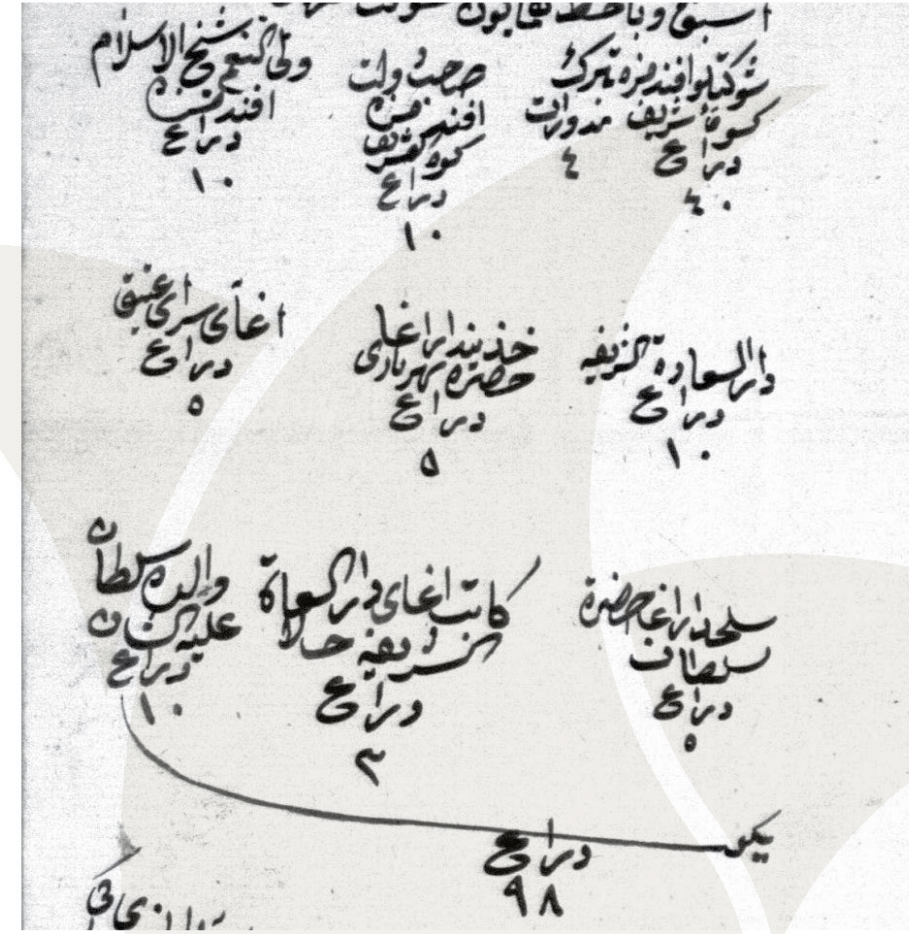 اسبق وباخط همايون شوكت
شوكتلو افندمزه تبرك
كسوۀ شريف مدورات
دراع ٤
٤٠
صاحب دولت
افندمزه
كسوه شريف
دراع
١٠
ولي النعم شيخ الاسلام
افندمزه
دراع
١٠
دار السعادة الشريفه
دراع
١٠
خزينه دار اغا
حضرت شهرياري
دراع
٥
اغاى سراى عتيق
دراع
٥
سلحدار اغا حضرة
سلطان
دراع
٥
كاتب اغاى دار السعادة
الشريفه حالا
دراع
٣
والده سلطان
علية الشان
دراع
١٠
يكون
دراع
٩٨